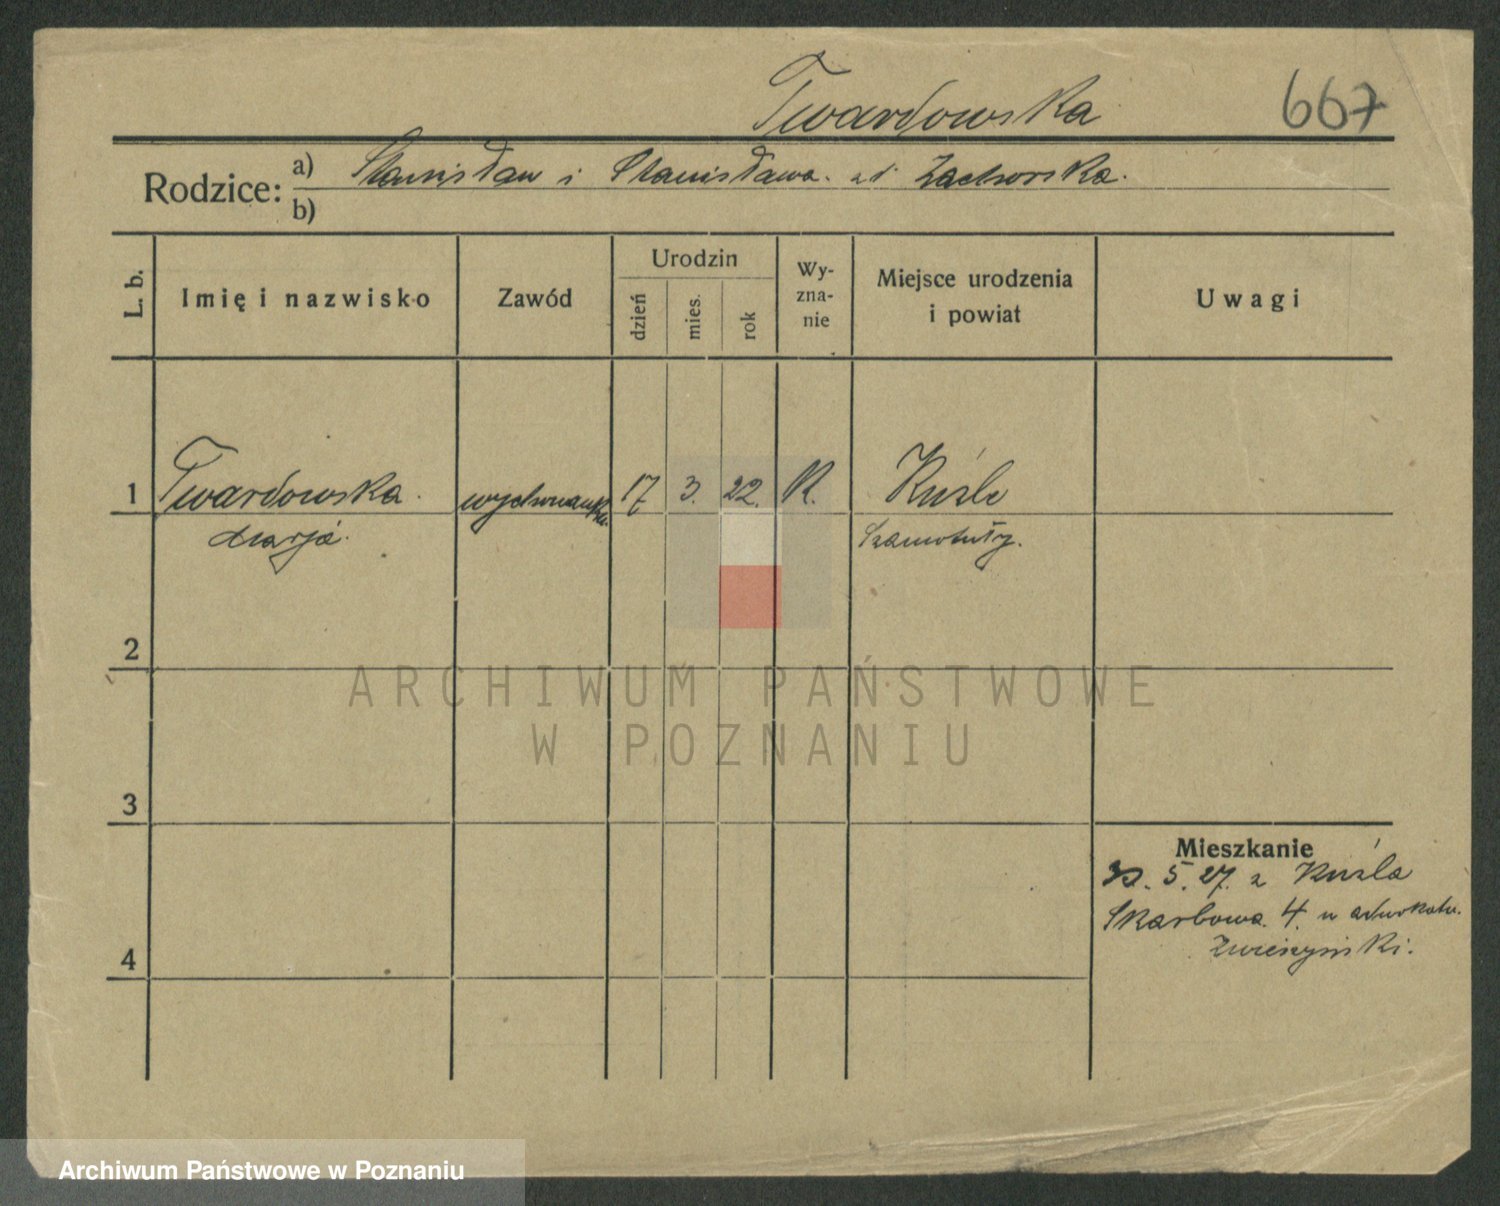 Twardowska 667
Rodzice: a) Stanisław i Stanisława zd. Zachorska.
b)
L. b.
Imię i nazwisko
Zawód
Urodzin
dzień
mies.
rok
Wy-
zna-
nie
Miejsce urodzenia
i powiat
Uwagi
1 Twardowska wychowanka 17 3. 22. K. Kuźle
Marja. Szamotuły.
2
3
4
Mieszkanie
5. 27. z Kuźla
Skarbowa. 4. u adwokata.
ARCHIWUM PAŃSTWOWE
W POZNANIU
Archiwum Państwowe w Poznaniu